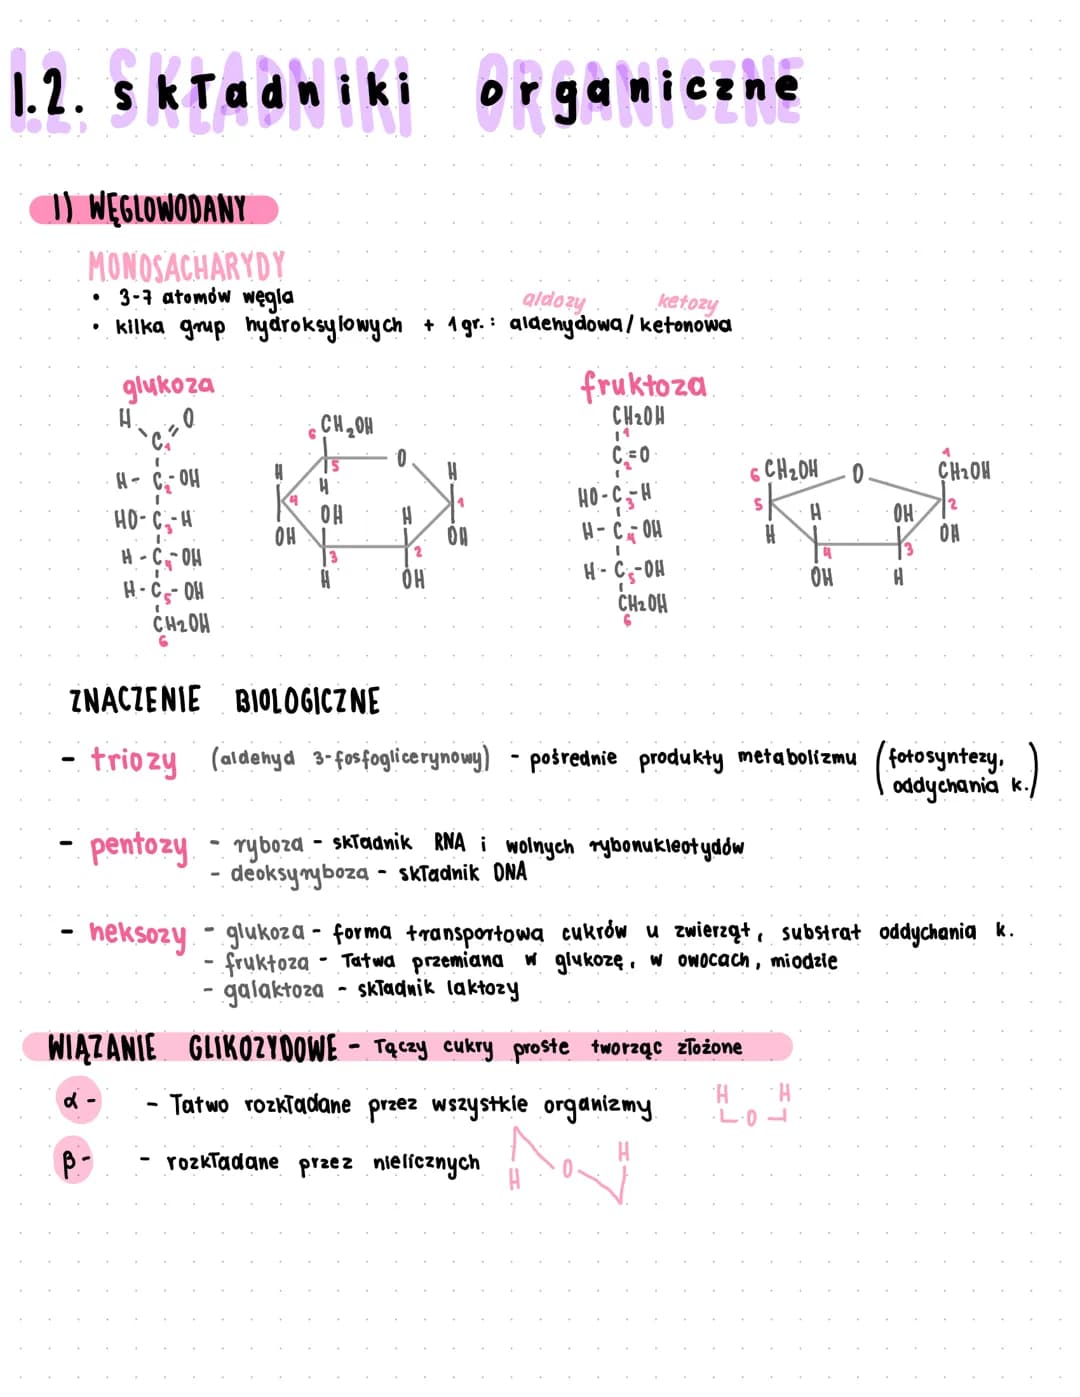 1.2. składniki organiczne
1) WĘGLOWODANY
MONOSACHARYDY
• 3-7 atomów węgla
aldozy ketozy
• kilka grup hydroksylowych + 1 gr.: aldehydowa/ketonowa
glukoza
H O
C1
H - C2 - OH
HO - C3 - H
H - C4 - OH
H - C5 - OH
CH2OH
6
6 CH2OH
5 O
H H H
4 1
OH OH H OH
3 2
H OH
fruktoza
CH2OH
1
C2=O
HO - C3 - H
H - C4 - OH
H - C5 - OH
CH2OH
6
1
6 CH2OH O CH2OH
5 2
H H OH OH
4 3
OH H
ZNACZENIE BIOLOGICZNE
- triozy (aldehyd 3-fosfoglicerynowy) - pośrednie produkty metabolizmu (fotosyntezy,
oddychania k.)
- pentozy - ryboza - składnik RNA i wolnych rybonukleotydów
- deoksyryboza - składnik DNA
- heksozy - glukoza - forma transportowa cukrów u zwierząt, substrat oddychania k.
- fruktoza - łatwa przemiana w glukozę, w owocach, miodzie
- galaktoza - składnik laktozy
WIĄZANIE GLIKOZYDOWE - łączy cukry proste tworząc złożone
α - - łatwo rozkładane przez wszystkie organizmy
H H
O
β - - rozkładane przez nielicznych
H O H